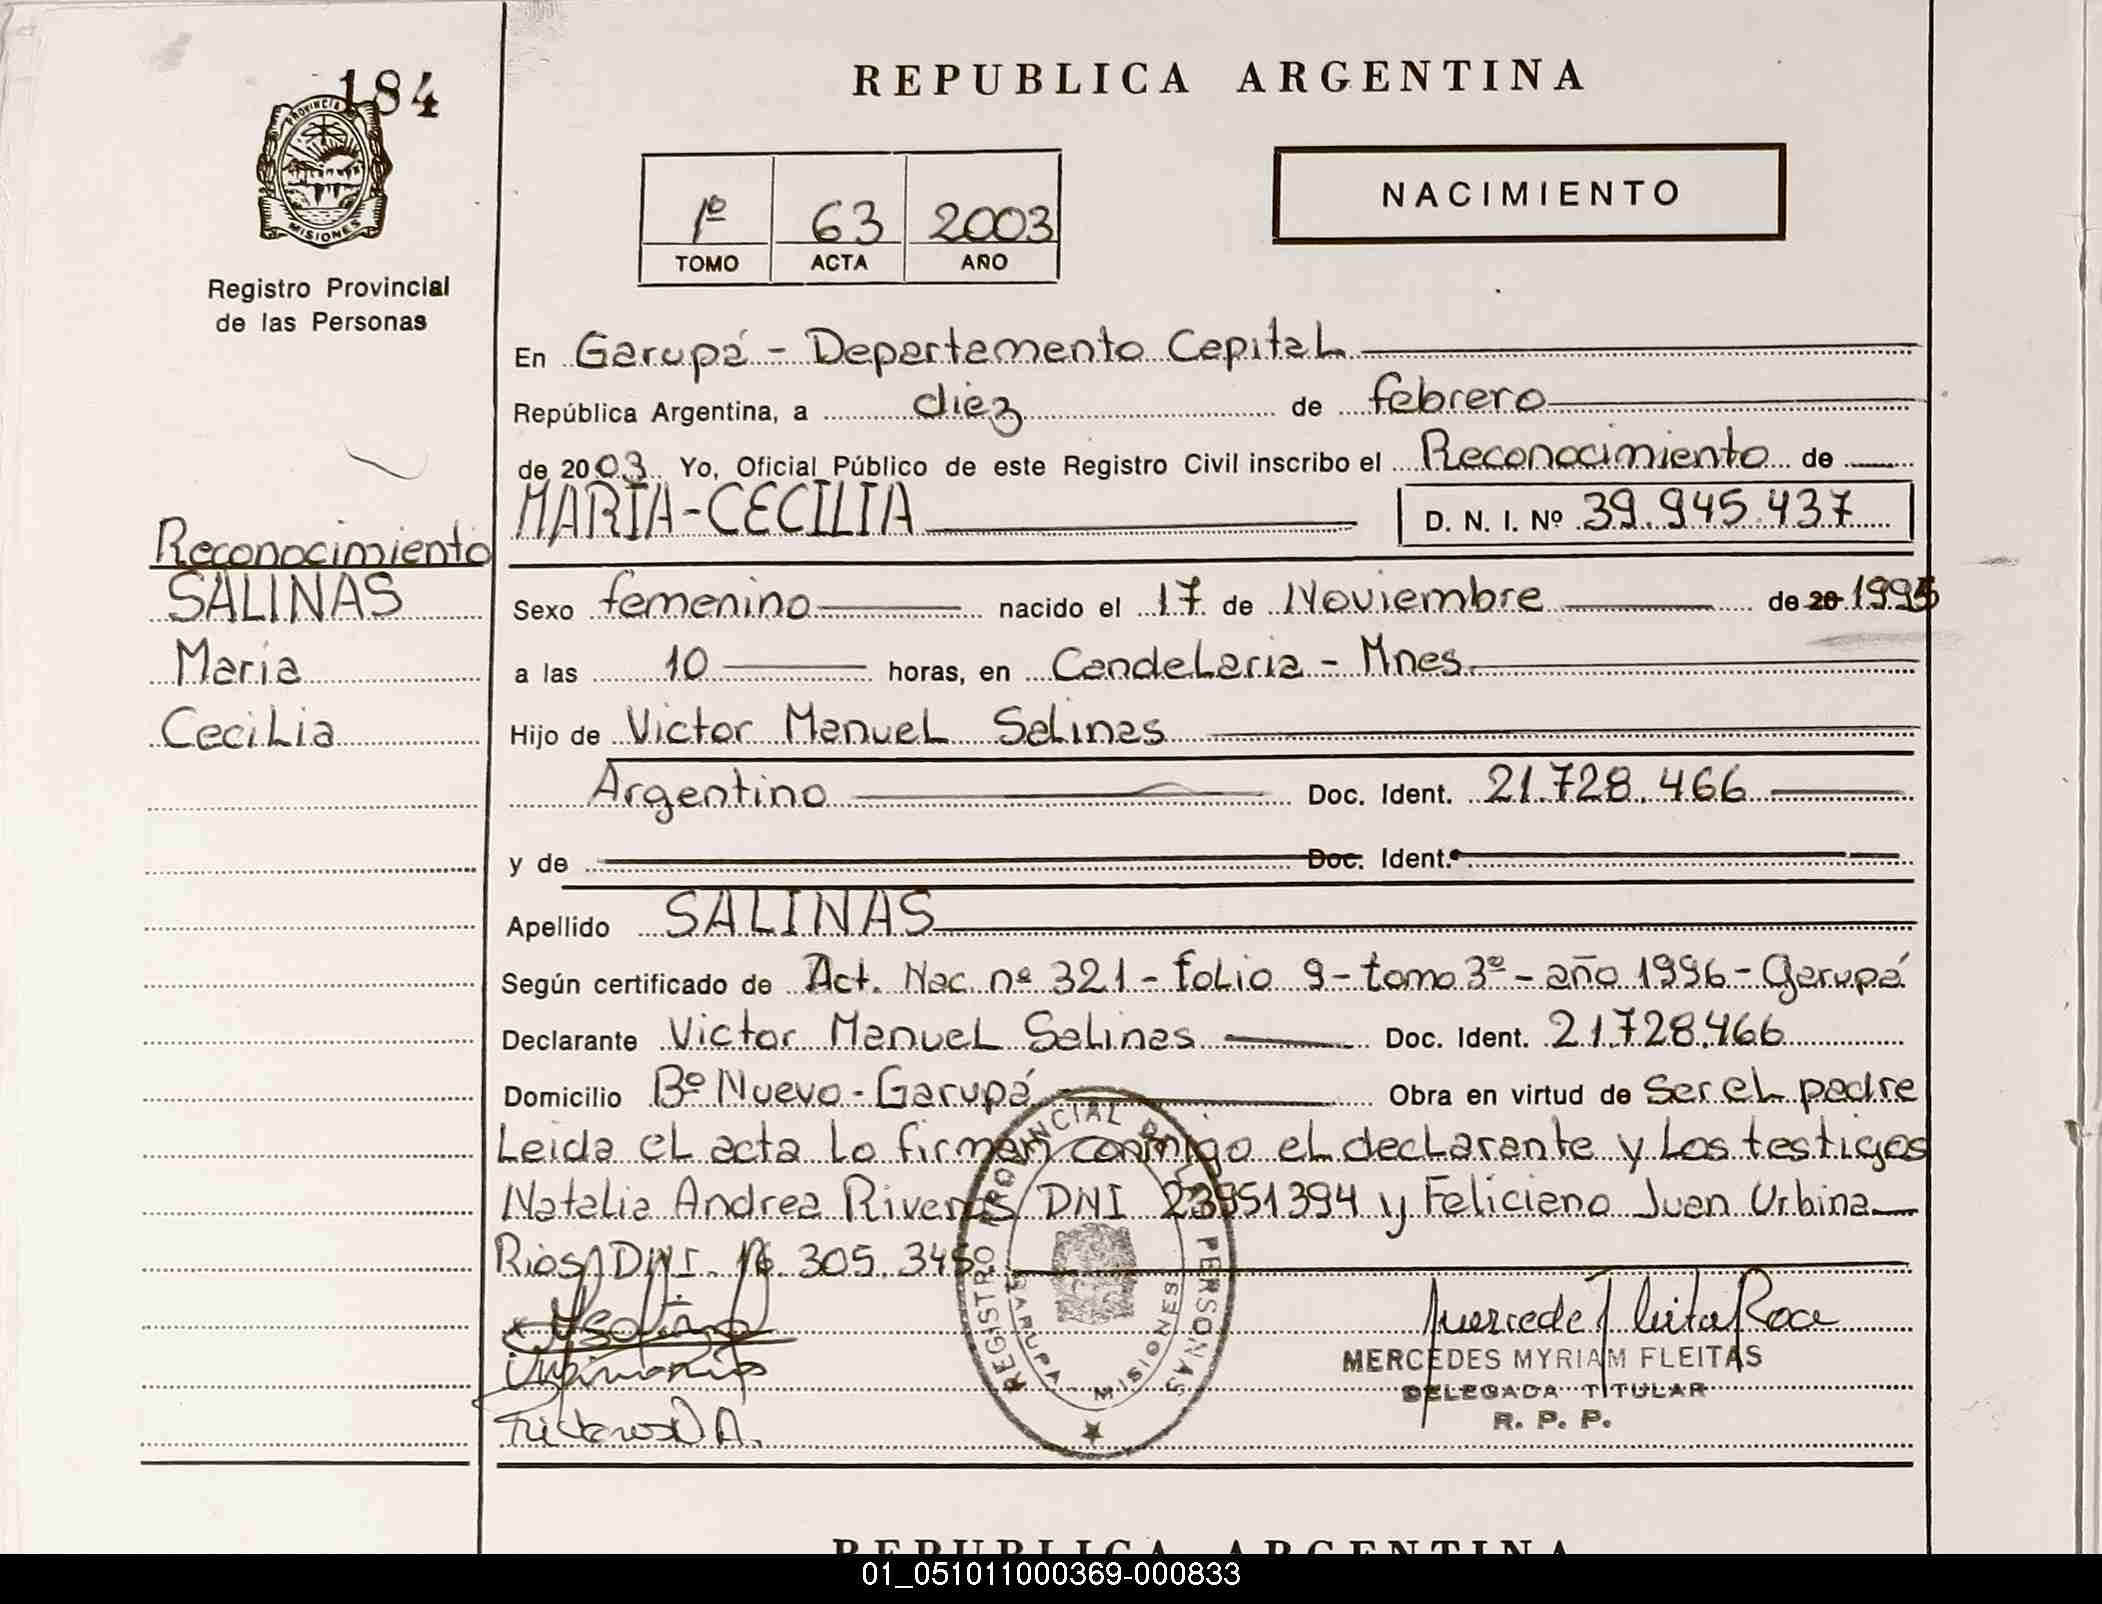 184
PROVINCIA
MISIONES
Registro Provincial
de las Personas
REPUBLICA ARGENTINA
1º 63 2003
TOMO ACTA AÑO
NACIMIENTO
En Garupá - Departamento Capital
República Argentina, a diez de febrero
de 2003 Yo, Oficial Público de este Registro Civil inscribo el Reconocimiento de
MARÍA-CECILIA D. N. I. Nº 39.945.437
Reconocimiento
SALINAS
Maria
Cecilia
Sexo femenino nacido el 17 de Noviembre de 20 1995
a las 10 horas, en Candelaria - Mnes.
Hijo de Victor Manuel Salinas
Argentino Doc. Ident. 21.728.466
y de Doc. Ident.
Apellido SALINAS
Según certificado de Act. Nac. nº 321 - folio 9 - tomo 3º - año 1996 - Garupá
Declarante Victor Manuel Salinas Doc. Ident. 21.728.466
Domicilio Bº Nuevo - Garupá Obra en virtud de Ser el padre
Leida el acta lo firman conmigo el declarante y los testigos
Natalia Andrea Riveros DNI 23951394 y Feliciano Juan Urbina
Rios DNI. 16.305.345
REGISTRO PROVINCIAL DE LAS PERSONAS
GARUPA MISIONES
MERCEDES MYRIAM FLEITAS
DELEGADA TITULAR
R. P. P.
REPUBLICA ARGENTINA
01_051011000369-000833